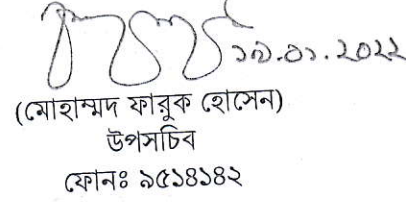 ১৯.০১.২০২২
(মোহাম্মদ ফারুক হোসেন)
উপসচিব
ফোনঃ ৯৫১৪১৪২